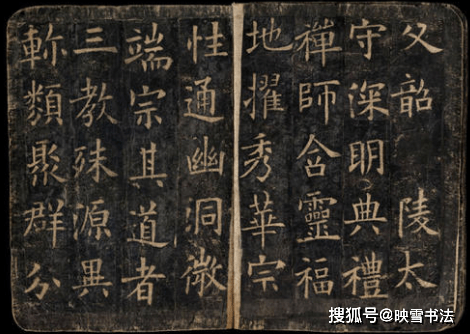 父韶陵太
守深明典禮
禪師含靈福
地擢秀華宗
性通幽洞微
端宗其道者
三教殊源異
軫類聚群分
搜狐号@映雪书法